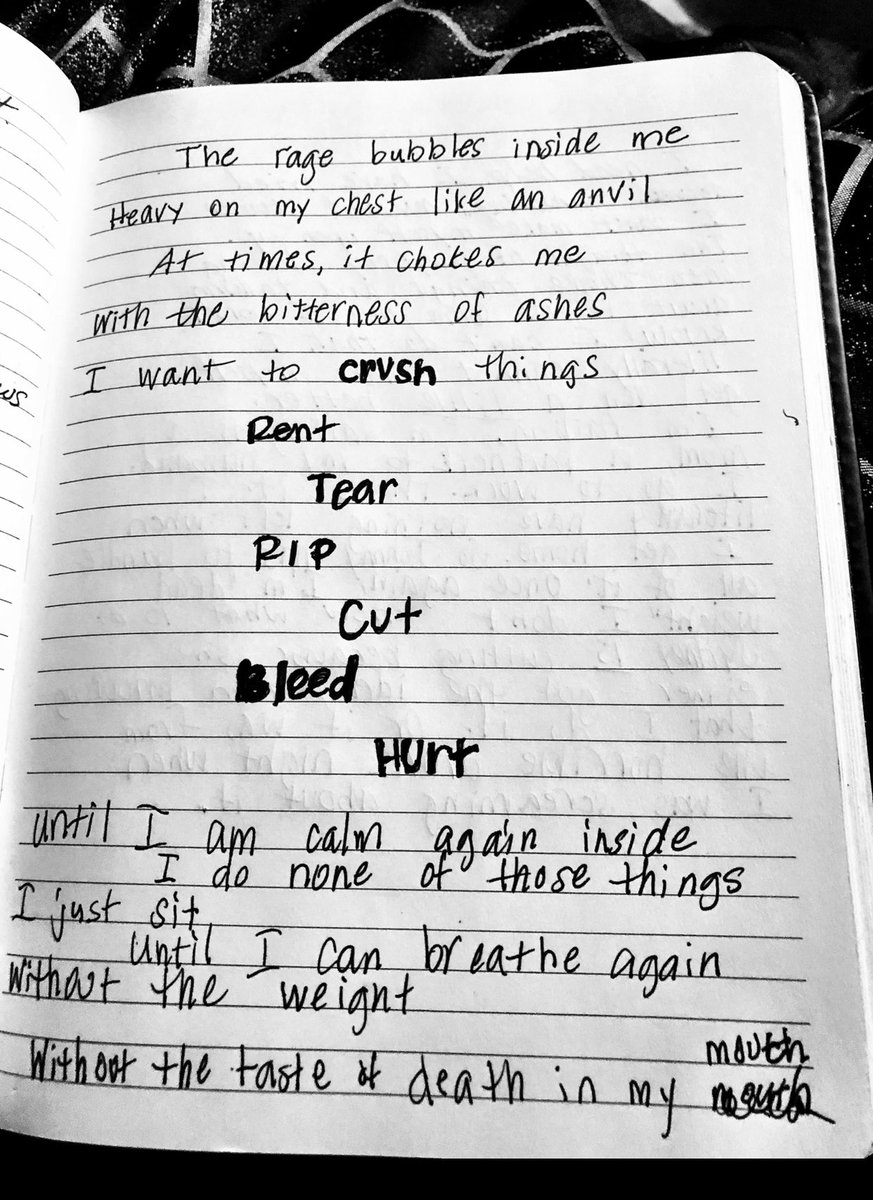 The rage bubbles inside me
Heavy on my chest like an anvil
At times, it chokes me
with the bitterness of ashes
I want to crush things
Rent
Tear
RIP
Cut
Bleed
Hurt
until I am calm again inside
I do none of those things
I just sit
until I can breathe again
Without the weight
Without the taste of death in my mouth